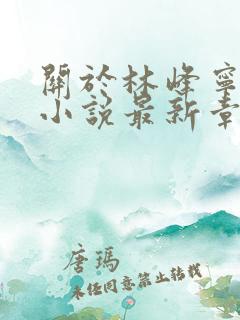 關於林峰寧
小說最新章
唐瑪
未經同意禁止轉載